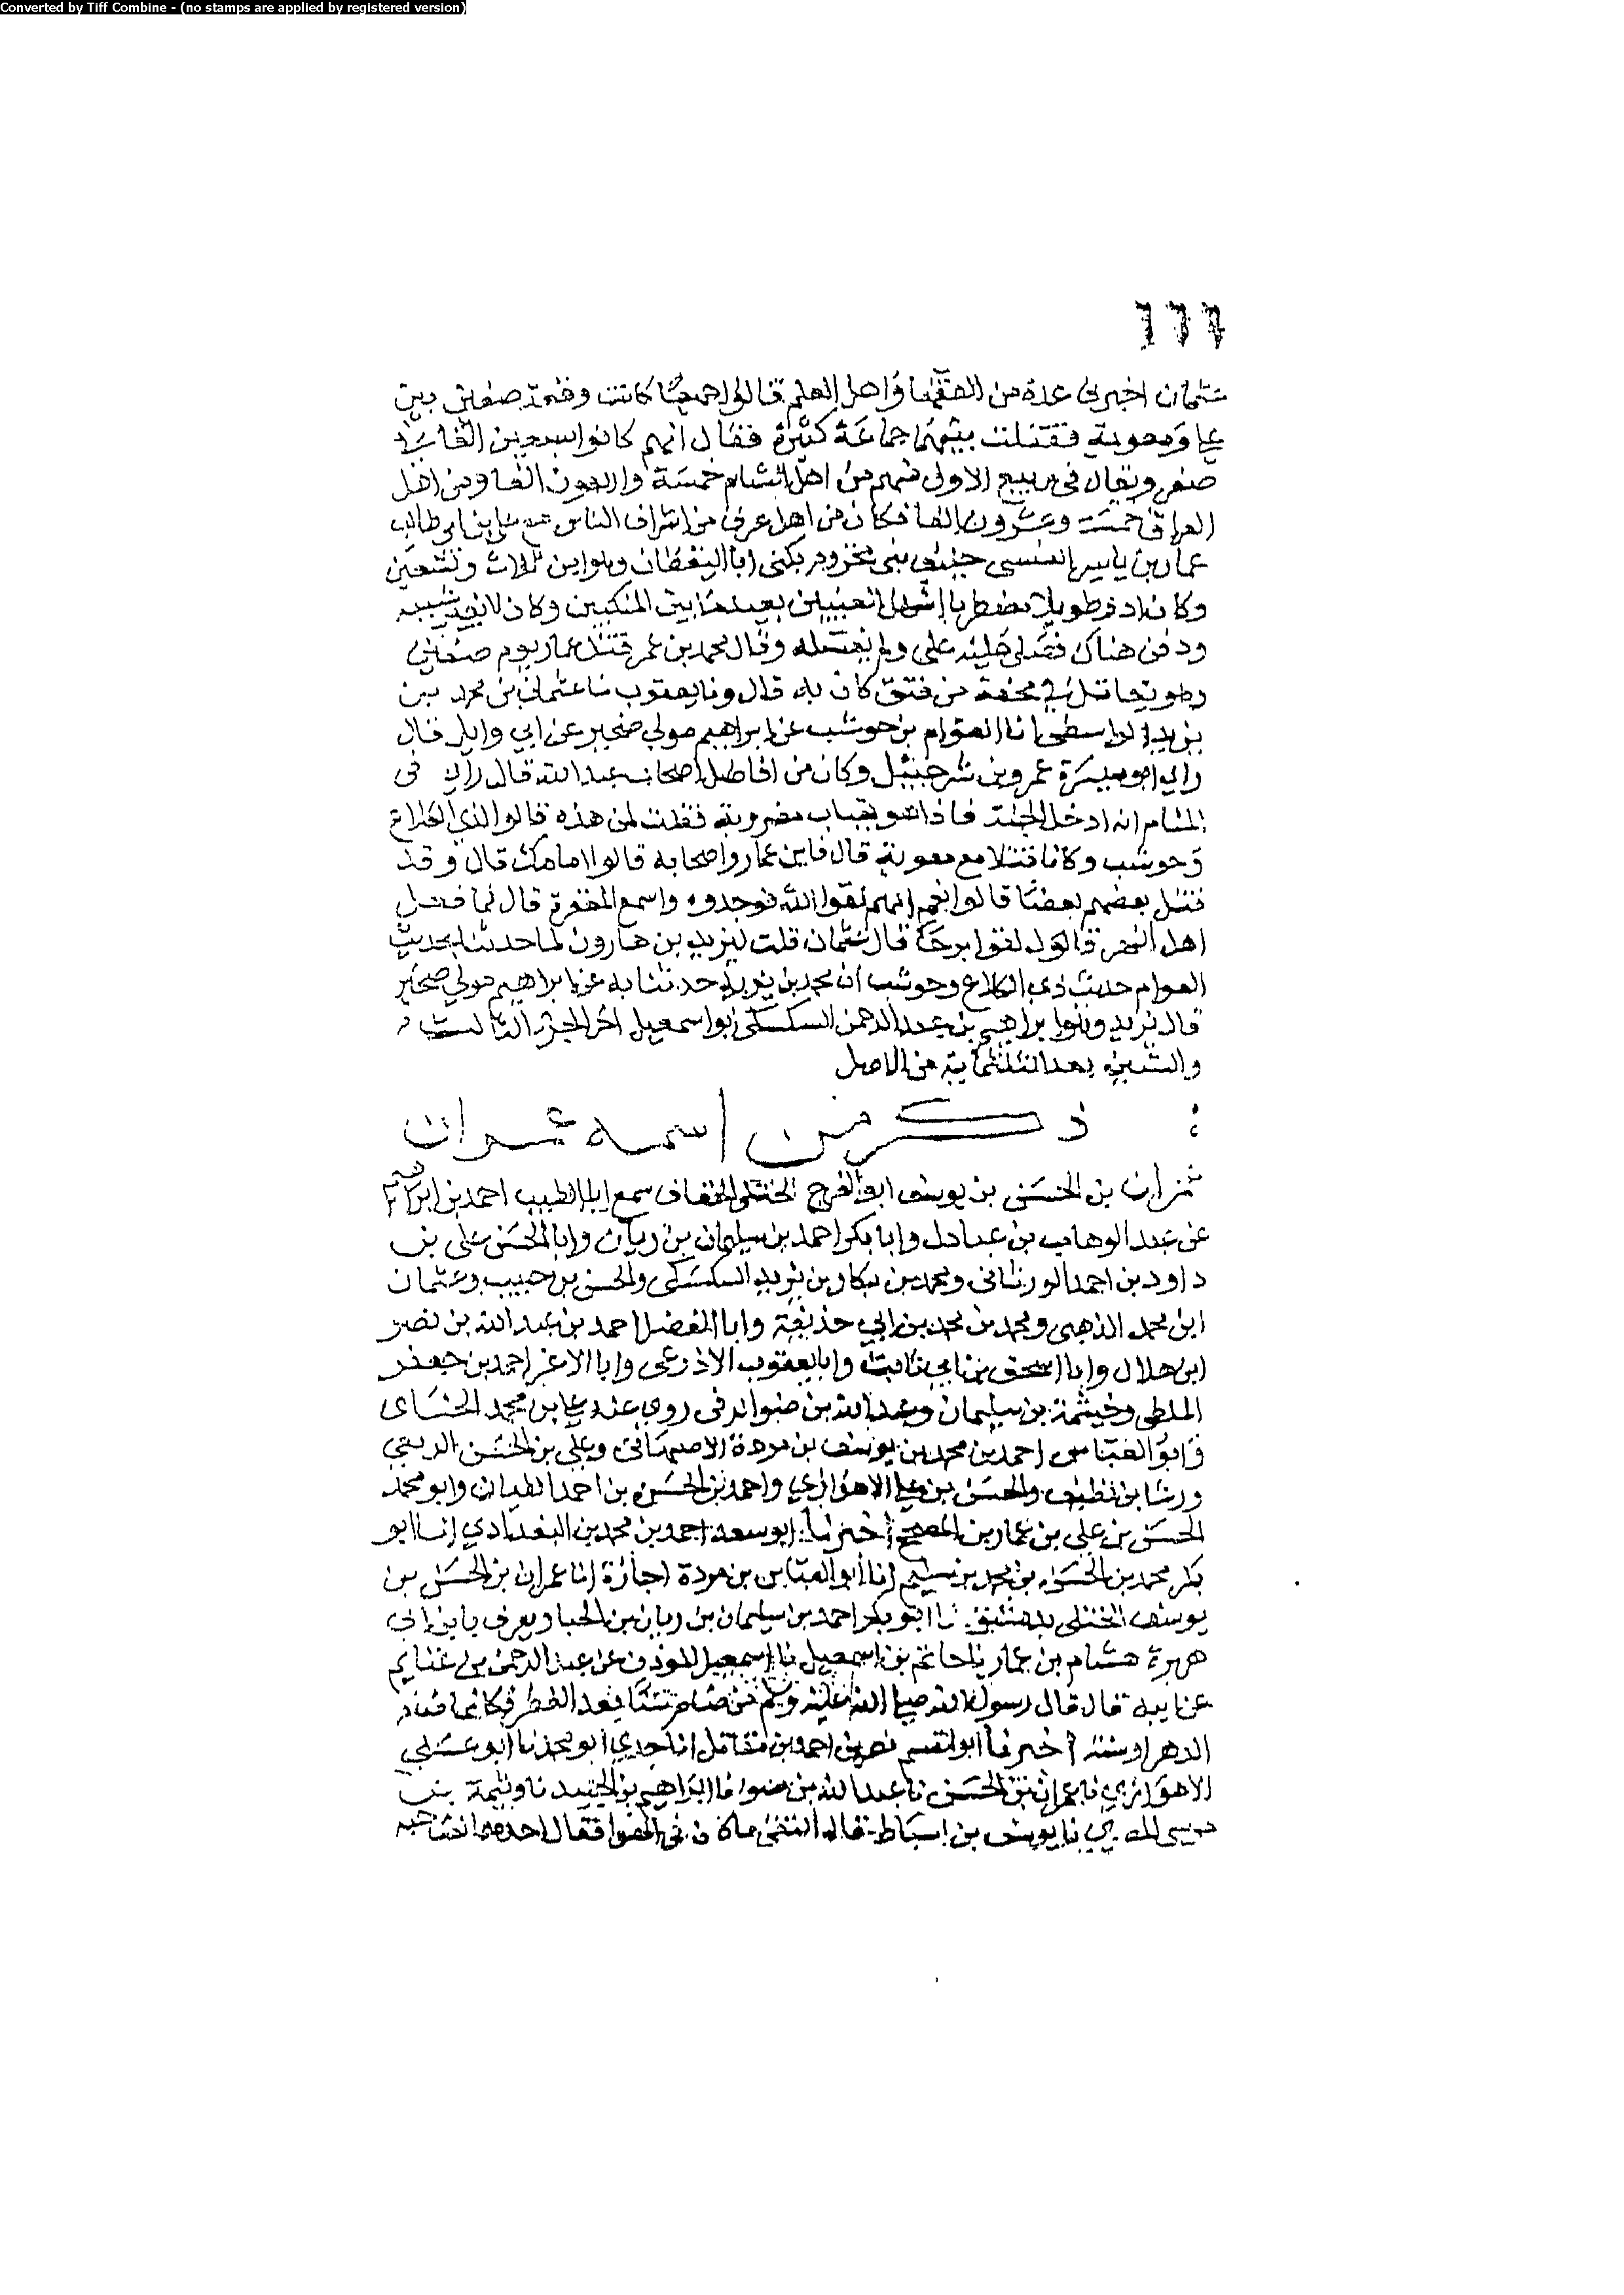 Converted by Tiff Combine - (no stamps are applied by registered version)
٦٦٦
عثمان اخبرني عدة من الفقها واهل العلم قالوا جميعا كانت وقعة صفين بين
علي ومعوية فقتلت بينهما جماعة كثيرة فقال انهم كانوا سبعين الفا في
صفر ويقال في ربيع الاول منهم من اهل الشام خمسة واربعون الفا ومن اهل
العراق خمسة وعشرون الفا فكان من اهل عرف من اشراف الناس مع علي بن ابي طالب
عمار بن ياسر العنسي حليف بني مخزوم يكنى ابا اليقظان وهو ابن ثلاث وتسعين
وكان ادم طويلا مضطربا اشهل العينين بعيد ما بين المنكبين وكان لا يغير شيبه
ودفن هناك فصلى عليه علي ولم يغسله وقال محمد بن عمر قتل عمار يوم صفين
وهو يقاتل في محفة من فتق كان به قال ونا يعقوب نا عثمان بن محمد بن
يزيد الواسطي انا العوام بن حوشب عن ابراهيم مولي صخير عن ابي وايل قال
راي ابو ميسرة عمرو بن شرحبيل وكان من افاضل اصحاب عبد الله قال رايت في
المنام اني ادخل الجنة فاذا هو بقباب مضروبة فقلت لمن هذه قالوا لذي الكلاع
وحوشب وكانا قتلا مع معوية قال فاين عمار واصحابه قالوا امامك قال وقد
قتل بعضهم بعضا قالوا نعم انهم لقوا الله فوجدوه واسع المغفرة قال فما فعل
اهل النهر قالوا لقوا برحا قال عثمان قلت ليزيد بن هارون لما حدثنا بحديث
العوام حديث ذي الكلاع وحوشب ان محمد بن يزيد حدثنا به عن ابراهيم مولي صخير
قال يزيد وهو ابراهيم بن عبد الرحمن السكسكي ابو اسمعيل اخر الجزء الثالث
والستين بعد الثلثماية من الاصل
ذكر من اسمه عمران
عمران بن الحسن بن يوسف ابو الفرج الختلي الخفاف سمع ابا الطيب احمد بن ابراهيم
بن عبد الوهاب بن عبادل وابا بكر احمد بن سليمان بن زبان وابا الحسن علي بن
داود بن احمد الورثاني ومحمد بن بكار بن يزيد السكسكي والحسن بن حبيب وعثمان
ابن محمد الذهبي ومحمد بن محمد بن ابي حذيفة وابا الفضل احمد بن عبد الله بن نصر
ابن هلال وابا اسحق بن ابي ثابت وابا يعقوب الاذرعي وابا الاغر احمد بن جعفر
الملطي وخيثمة بن سليمان وعبد الله بن روى عنه علي بن محمد الحنائي
وابو العباس احمد بن محمد بن يوسف بن مردة الاصبهاني وعلي بن الحسن الربعي
ورشا بن نظيف والحسن بن علي الاهوازي واحمد بن الحسن بن احمد الطيان وابو محمد
الحسن بن علي بن عمار بن المصحح اخبرنا ابو سعد احمد بن محمد بن البغدادي انا ابو
بكر محمد بن الحسن بن محمد بن سليم انا ابو العباس بن مردة اجازة انا عمران بن الحسن بن
يوسف الختلي بدمشق نا ابو بكر احمد بن سليمان بن زبان بن الحباب ويعرف بابن ابي
هريرة هشام بن عمار نا حاتم بن اسمعيل نا اسمعيل المؤذن عن عبد الرحمن بن غنايم
عن ابيه قال قال رسول الله صلى الله عليه وسلم من صام ستا بعد الفطر فكانما صام
الدهر او سنته اخبرنا ابو القسم نصر بن احمد بن مقاتل انا جدي ابو محمد نا ابو علي
الاهوازي نا عمران بن الحسن نا عبد الله بن نا ابراهيم بن الجنيد نا وثيمة بن
موسى نا يوسف بن اسباط قال التقى ملكان في الهوا فقال احدهما لصاحبه